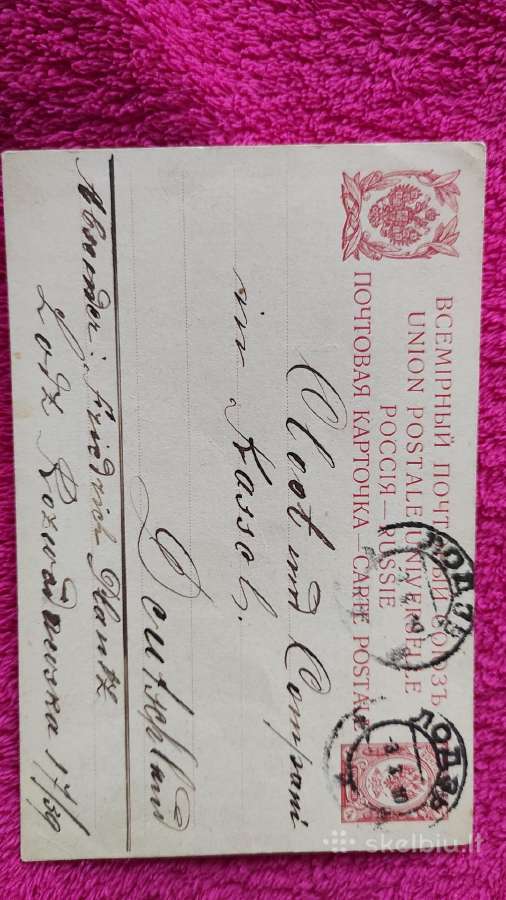 ВСЕМІРНЫЙ ПОЧТОВЫЙ СОЮЗЪ
UNION POSTALE UNIVERSELLE
РОССІЯ — RUSSIE
ПОЧТОВАЯ КАРТОЧКА — CARTE POSTALE
ЛОДЗЬ
ЛОДЗЬ
Cloot und Compani
in Kassel.
Deutschland
Absender: Friedrich
Lodz 17/59
skelbiu.lt